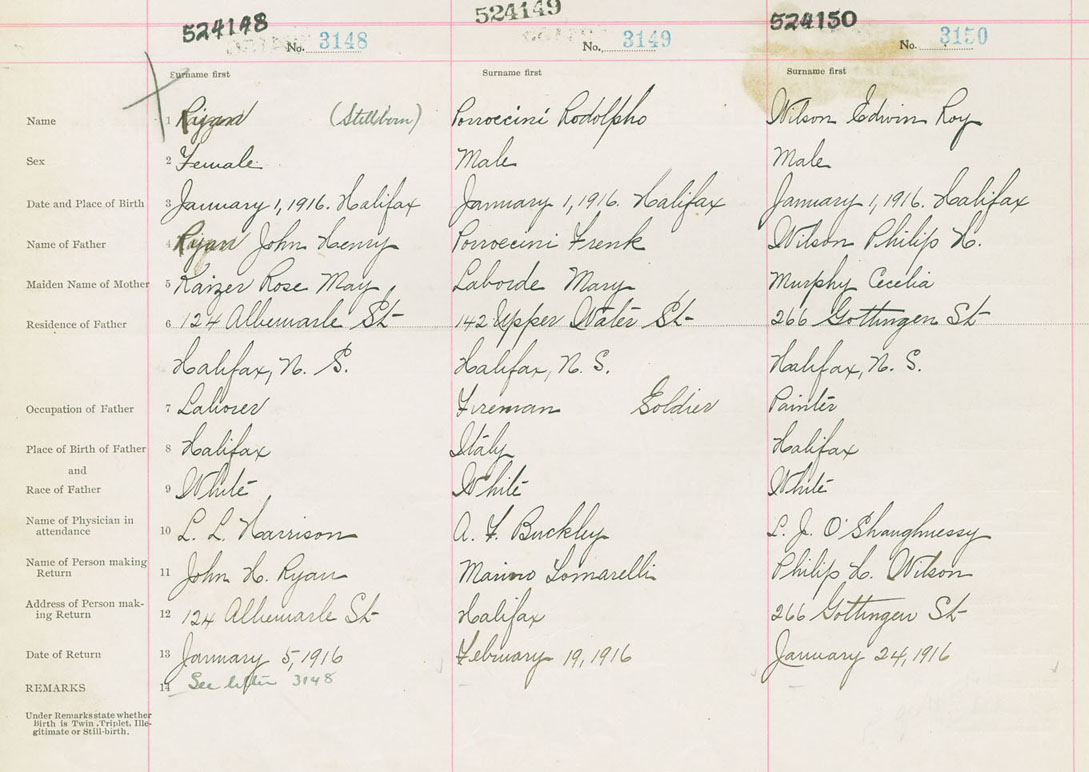 524148 524149 524150
No. 3148 No. 3149 No. 3150
Surname first Surname first Surname first
Name 1 Ryan (Stillborn) Porroccini Rodolpho Wilson Edwin Roy
Sex 2 Female Male Male
Date and Place of Birth 3 January 1, 1916. Halifax January 1, 1916. Halifax January 1, 1916. Halifax
Name of Father 4 Ryan John Henry Porroccini Frenk Wilson Philip H.
Maiden Name of Mother 5 Kaizer Rose May Laborde Mary Murphy Cecelia
Residence of Father 6 124 Albemarle St 142 Upper Water St 266 Gottingen St
Halifax, N. S. Halifax, N. S. Halifax, N. S.
Occupation of Father 7 Laborer Fireman Soldier Painter
Place of Birth of Father 8 Halifax Italy Halifax
and
Race of Father 9 White White White
Name of Physician in
attendance 10 L. L. Harrison A. F. Buckley L. J. O'Shaughnessy
Name of Person making
Return 11 John H. Ryan Lomarelli Philip H. Wilson
Address of Person mak-
ing Return 12 124 Albemarle St Halifax 266 Gottingen St
Date of Return 13 January 5, 1916 February 19, 1916 January 24, 1916
REMARKS 14 See letter 3148
Under Remarks state whether
Birth is Twin, Triplet, Ille-
gitimate or Still-birth.